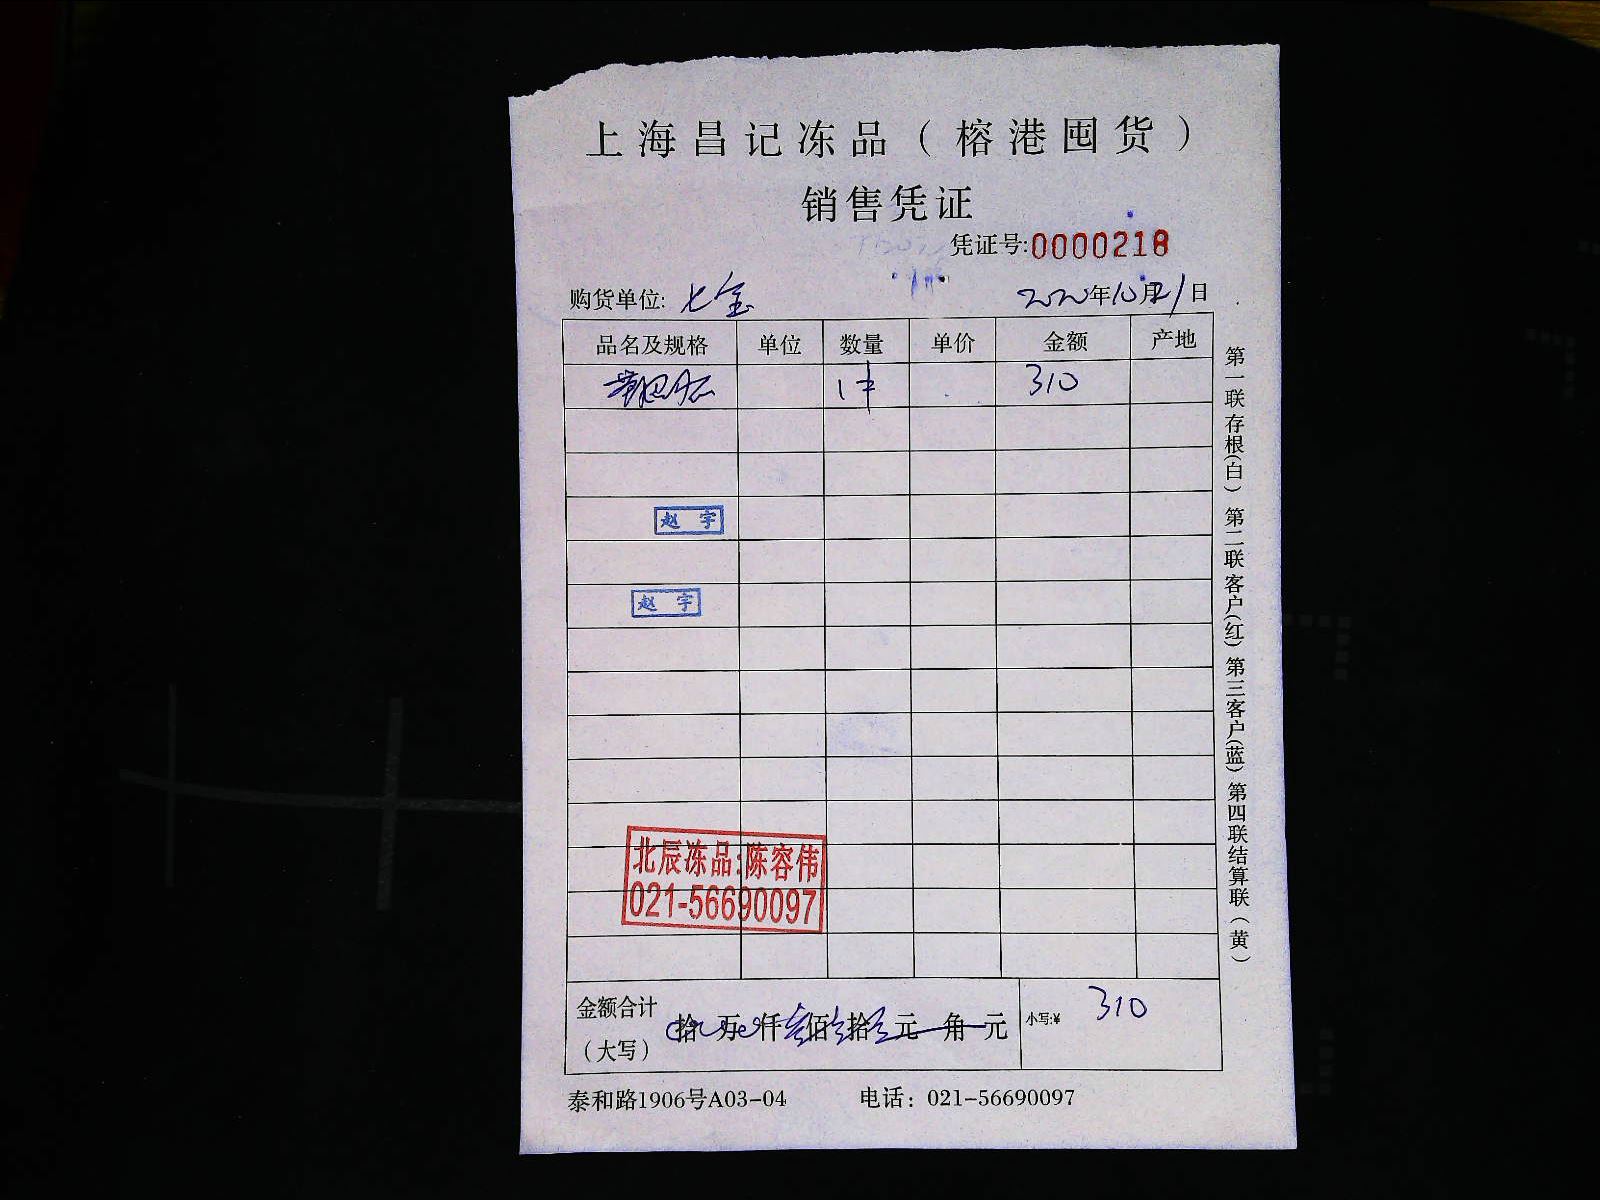 上海昌记冻品（榕港囤货）
销售凭证
凭证号:0000218
购货单位: 七宝 2020年10月21日
品名及规格 单位 数量 单价 金额 产地
1件 310
赵宇
赵宇
北辰冻品:陈容伟
021-56690097
金额合计
（大写） 拾 万 仟 佰 拾 元 角 元 小写:¥ 310
泰和路1906号A03-04 电话：021-56690097
第一联存根(白) 第二联客户(红) 第三客户(蓝) 第四联结算联(黄)